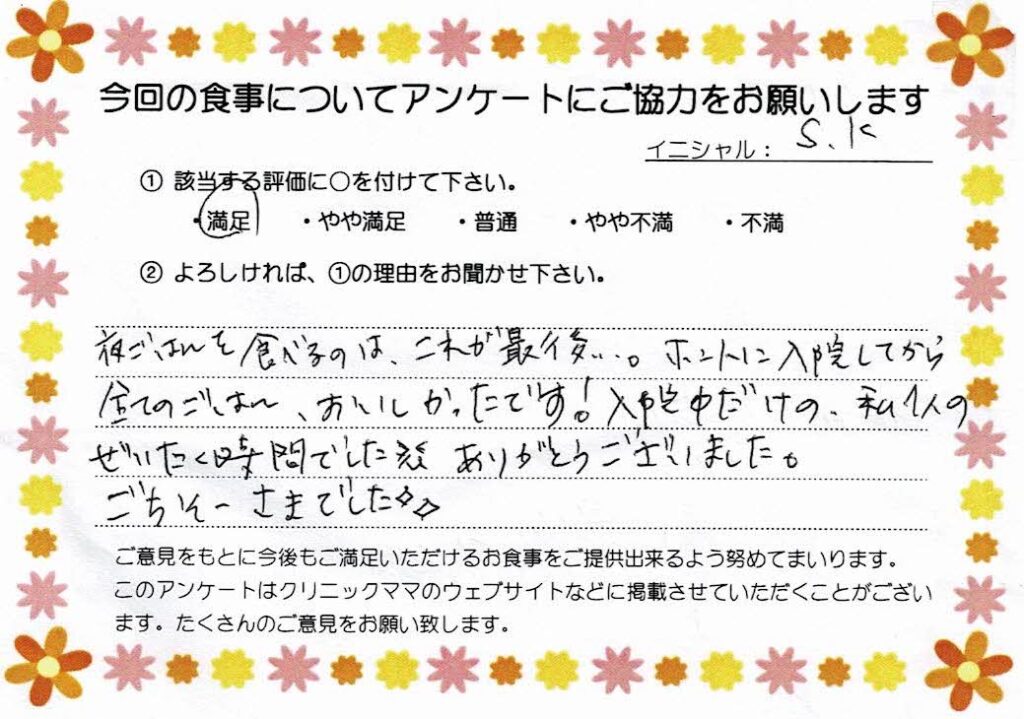 今回の食事についてアンケートにご協力をお願いします
イニシャル： S.K
① 該当する評価に○を付けて下さい。
・満足 ・やや満足 ・普通 ・やや不満 ・不満
② よろしければ、①の理由をお聞かせ下さい。
夜ごはんを食べるのは、これが最後…。ホントに入院してから
全てのごはん、おいしかったです！入院中だけの、私1人の
ぜいたく時間でした ありがとうございました。
ごちそーさまでした◇◇
ご意見をもとに今後もご満足いただけるお食事をご提供出来るよう努めてまいります。
このアンケートはクリニックママのウェブサイトなどに掲載させていただくことがござい
ます。たくさんのご意見をお願い致します。